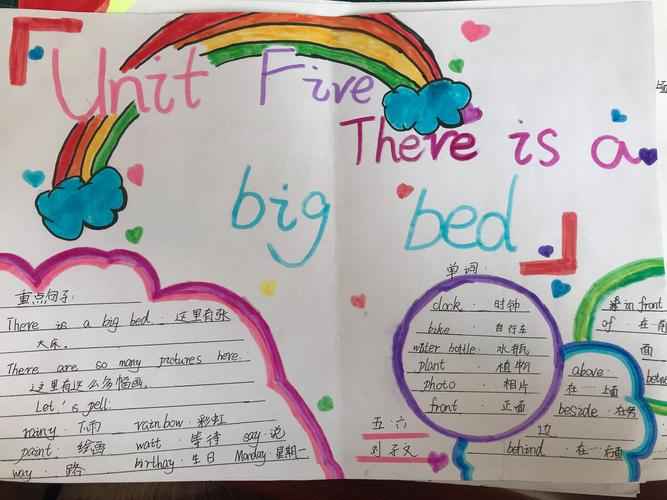 Unit Five
There is a
big bed
重点句子:
There is a big bed. 这里有张
大床.
There are so many pictures here.
这里有这么多幅画.
Let's pell.
rainy · 下雨 rainbow · 彩虹
paint · 绘画 watt · 等待 say · 说
way · 路 birthay · 生日 Monday 星期一
单词:
clock · 时钟
bike · 自行车
water bottle · 水瓶
plant · 植物
photo · 相片
front · 正面
五·六
in front
of · 在
面
above ·
在···上面
beside · 在
边
behind · 在···后面